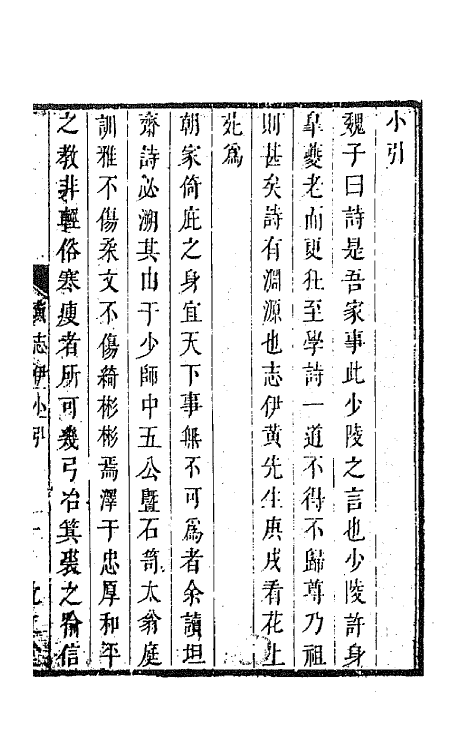 小引
魏子曰詩是吾家事此少陵之言也少陵許身
皐夔老而更狂至學詩一道不得不歸尊乃祖
則甚矣詩有淵源也志伊黃先生庚戌看花上
苑爲
朝家倚庇之身宜天下事無不可爲者余讀坦
齋詩必溯其由于少師中五公暨石笥太翁庭
訓雅不傷柔文不傷綺彬彬焉澤于忠厚和平
之教非輕俗寒瘦者所可幾弓冶箕裘之喻信
黃志伊小引 一